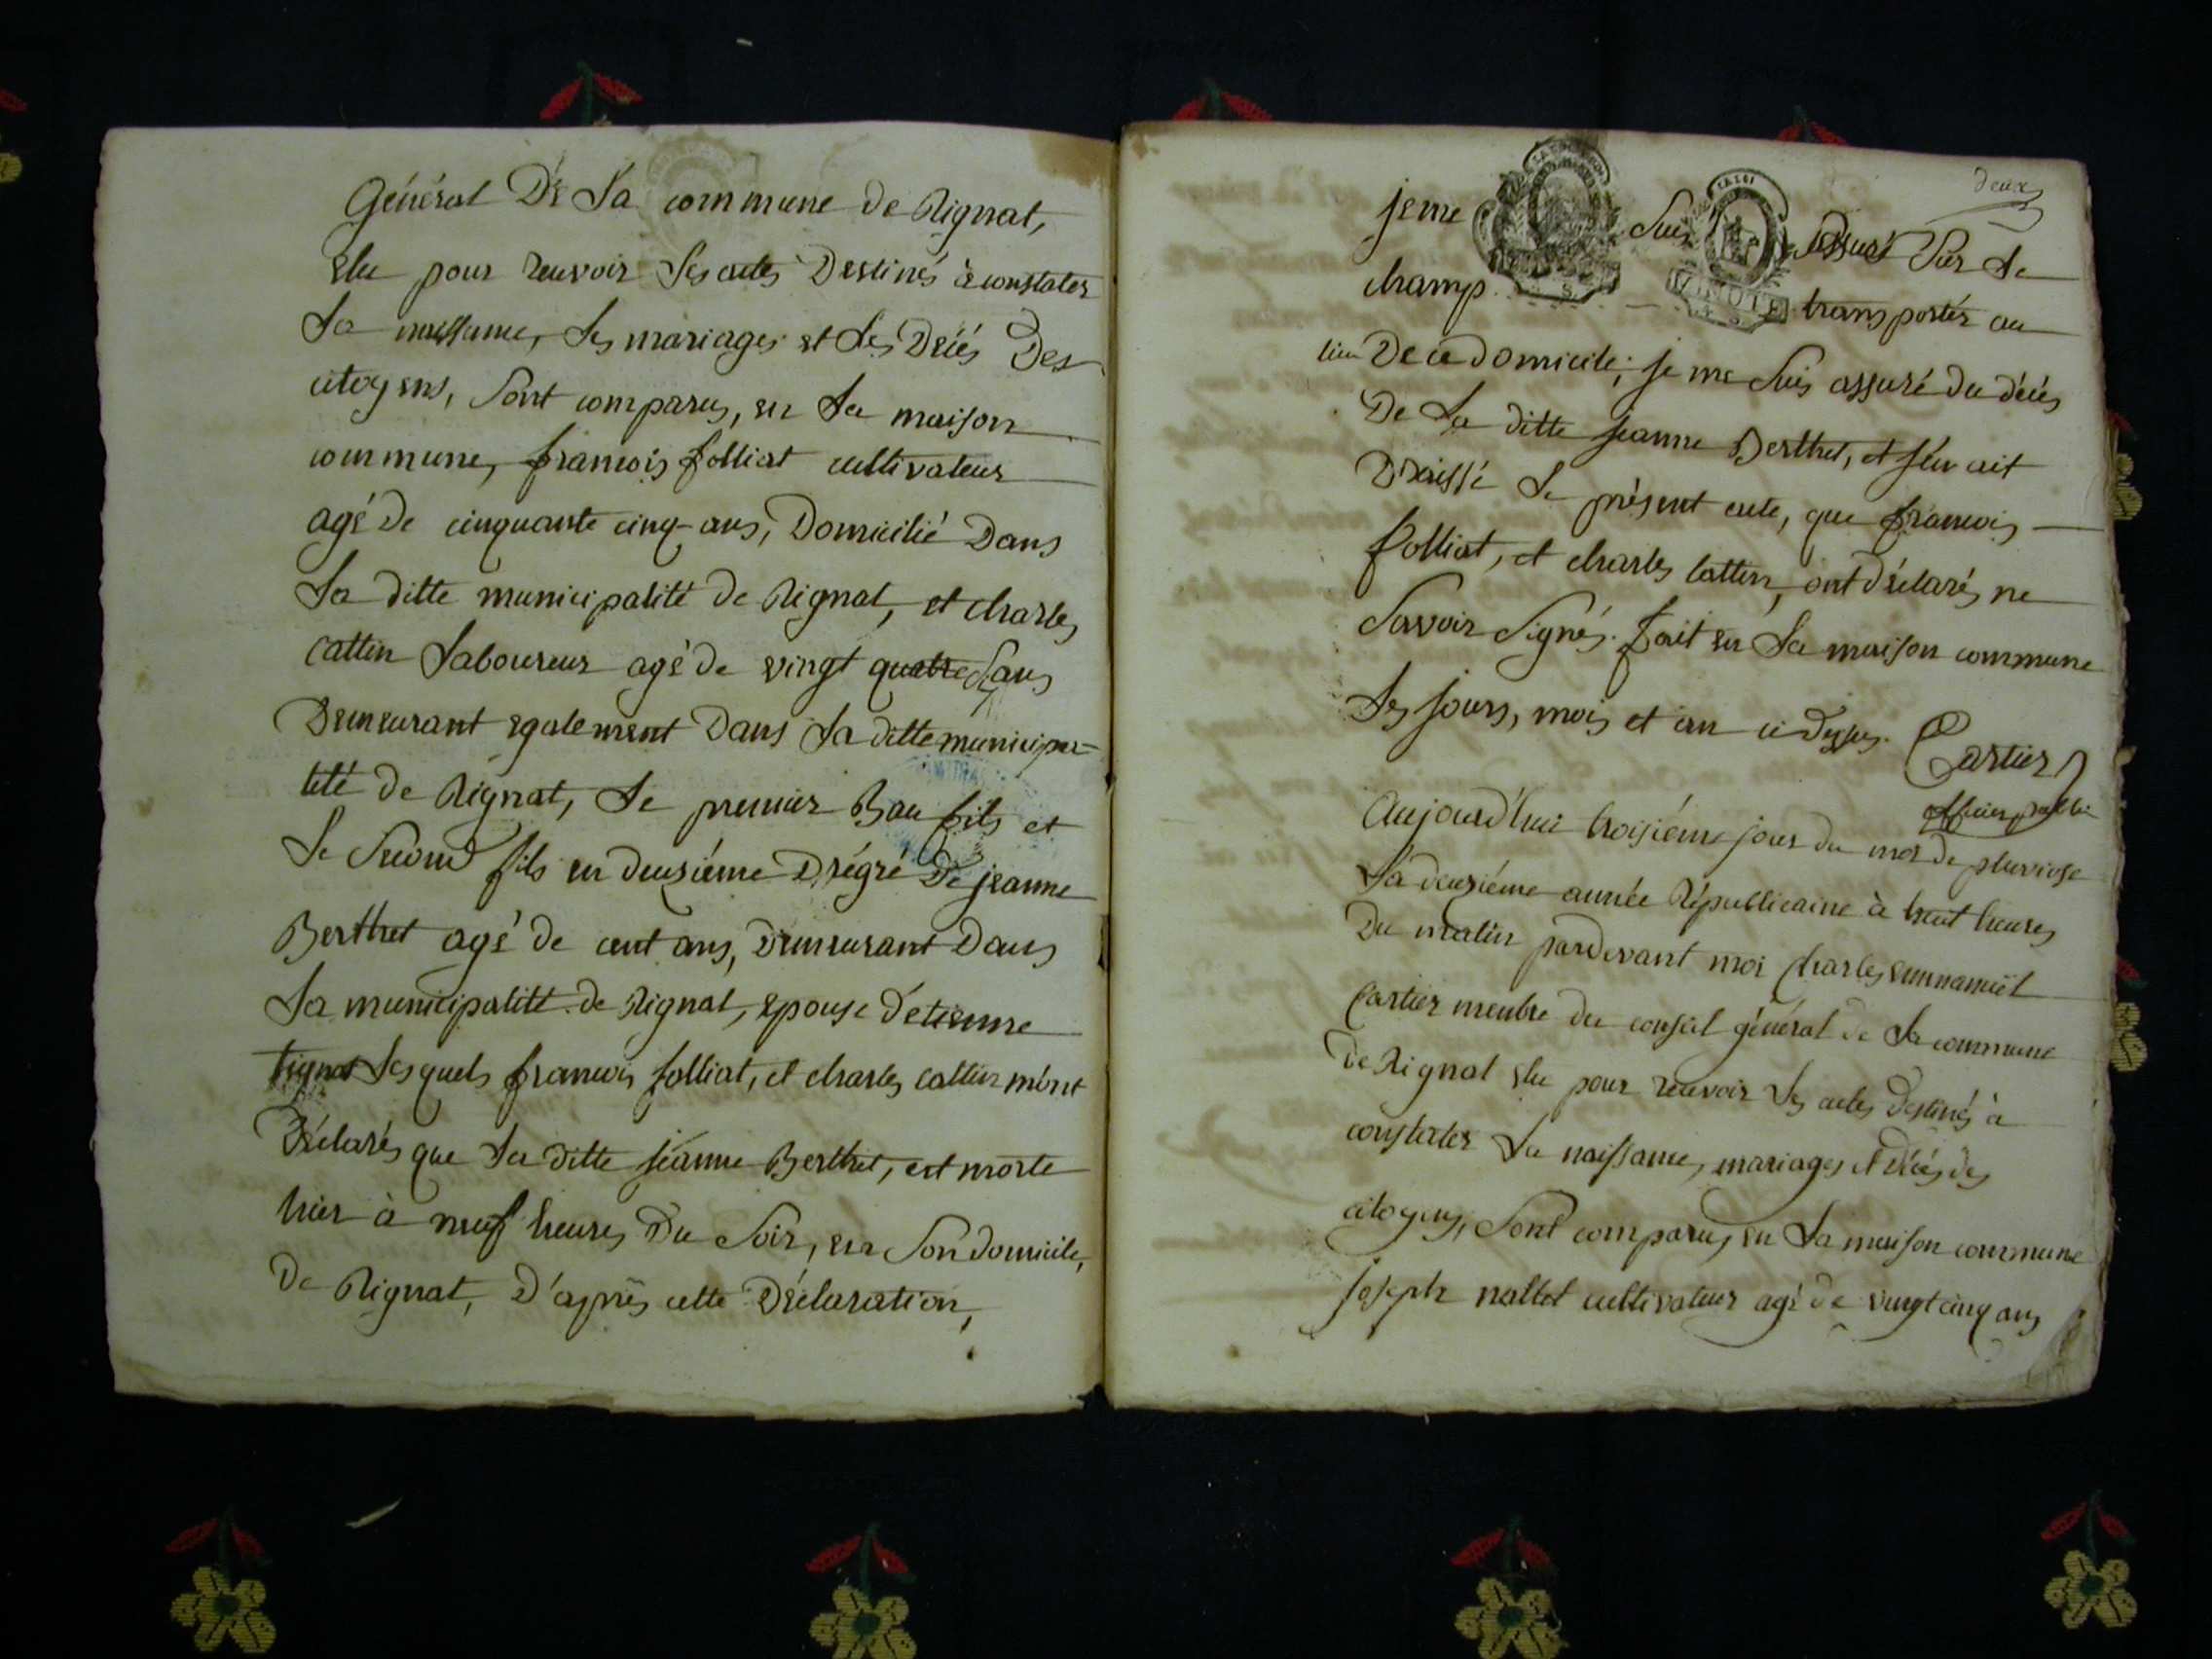 Général De La commune de Rignat,
elu pour recevoir les actes Destinés à constater
La naissance, Les mariages et Les Décés Des
citoyens, Sont comparus, en La maison
commune, francois folliat cultivateur
agé de cinquante cinq ans, Domicilié Dans
La ditte municipalité de Rignat, et charles
Cattin Laboureur agé de vingt quatre ans
Demeurant egalement Dans La ditte municipa-
lité de Rignat, Le premier Beau fils et
Le Second fils en deuxiéme Dégré De jeanne
Berthet agé de cent ans, Demeurant Dans
La municipalité de Rignat, epouse d'etienne
tignat Lesquels francois folliat, et charles cattin m'ont
Déclarés que La ditte jeanne Berthet, est morte
hier à neuf heures Du Soir, en Son domicile,
De Rignat, D'après cette Déclaration,
deux
je me Suis assuré Sur Le
LA LOI
champ transporter au
MINUTE
lieu De ce domicile; je me Suis assuré du décés
De La ditte jeanne Berthet, et j'en ait
Draissé Le présent acte, que francois
folliat, et charles Cattin, ont déclarés ne
Savoir Signés. fait en La maison commune
Les jours, mois et an ci dessus. Cartier
officier public
Aujourd'huit troisiéme jour du mois de pluviose
La deuxiéme année Républicaine à huit heures
Du matin pardevant moi Charles emmanuël
Cartier membre du conseil général de La commune
De Rignat elu pour recevoir Les actes Destinés à
constater La naissance, mariages et Décés des
citoyens, Sont comparus en La maison commune
joseph nallet cultivateur agé de vingt cinq ans